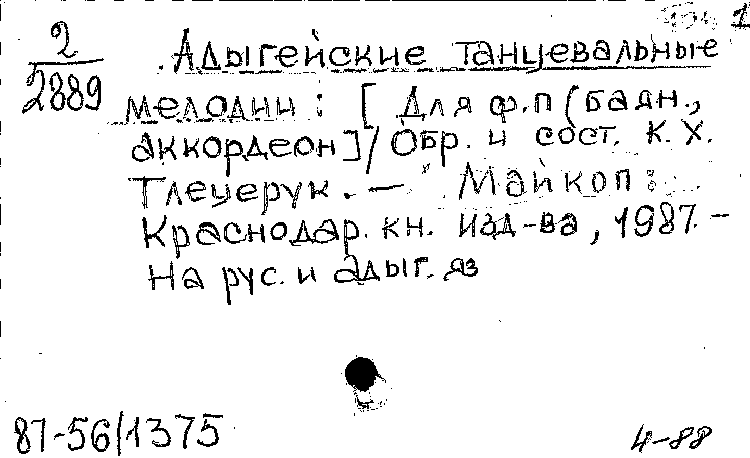 1
2/2889
Адыгейские танцевальные
мелодии: [Для ф.п (баян.,
аккордеон]/Обр. и сост. К.Х.
Тлецерук. — Майкоп:
Краснодар. кн. изд-ва, 1987. –
На рус. и адыг. яз
87-56/1375
4-88